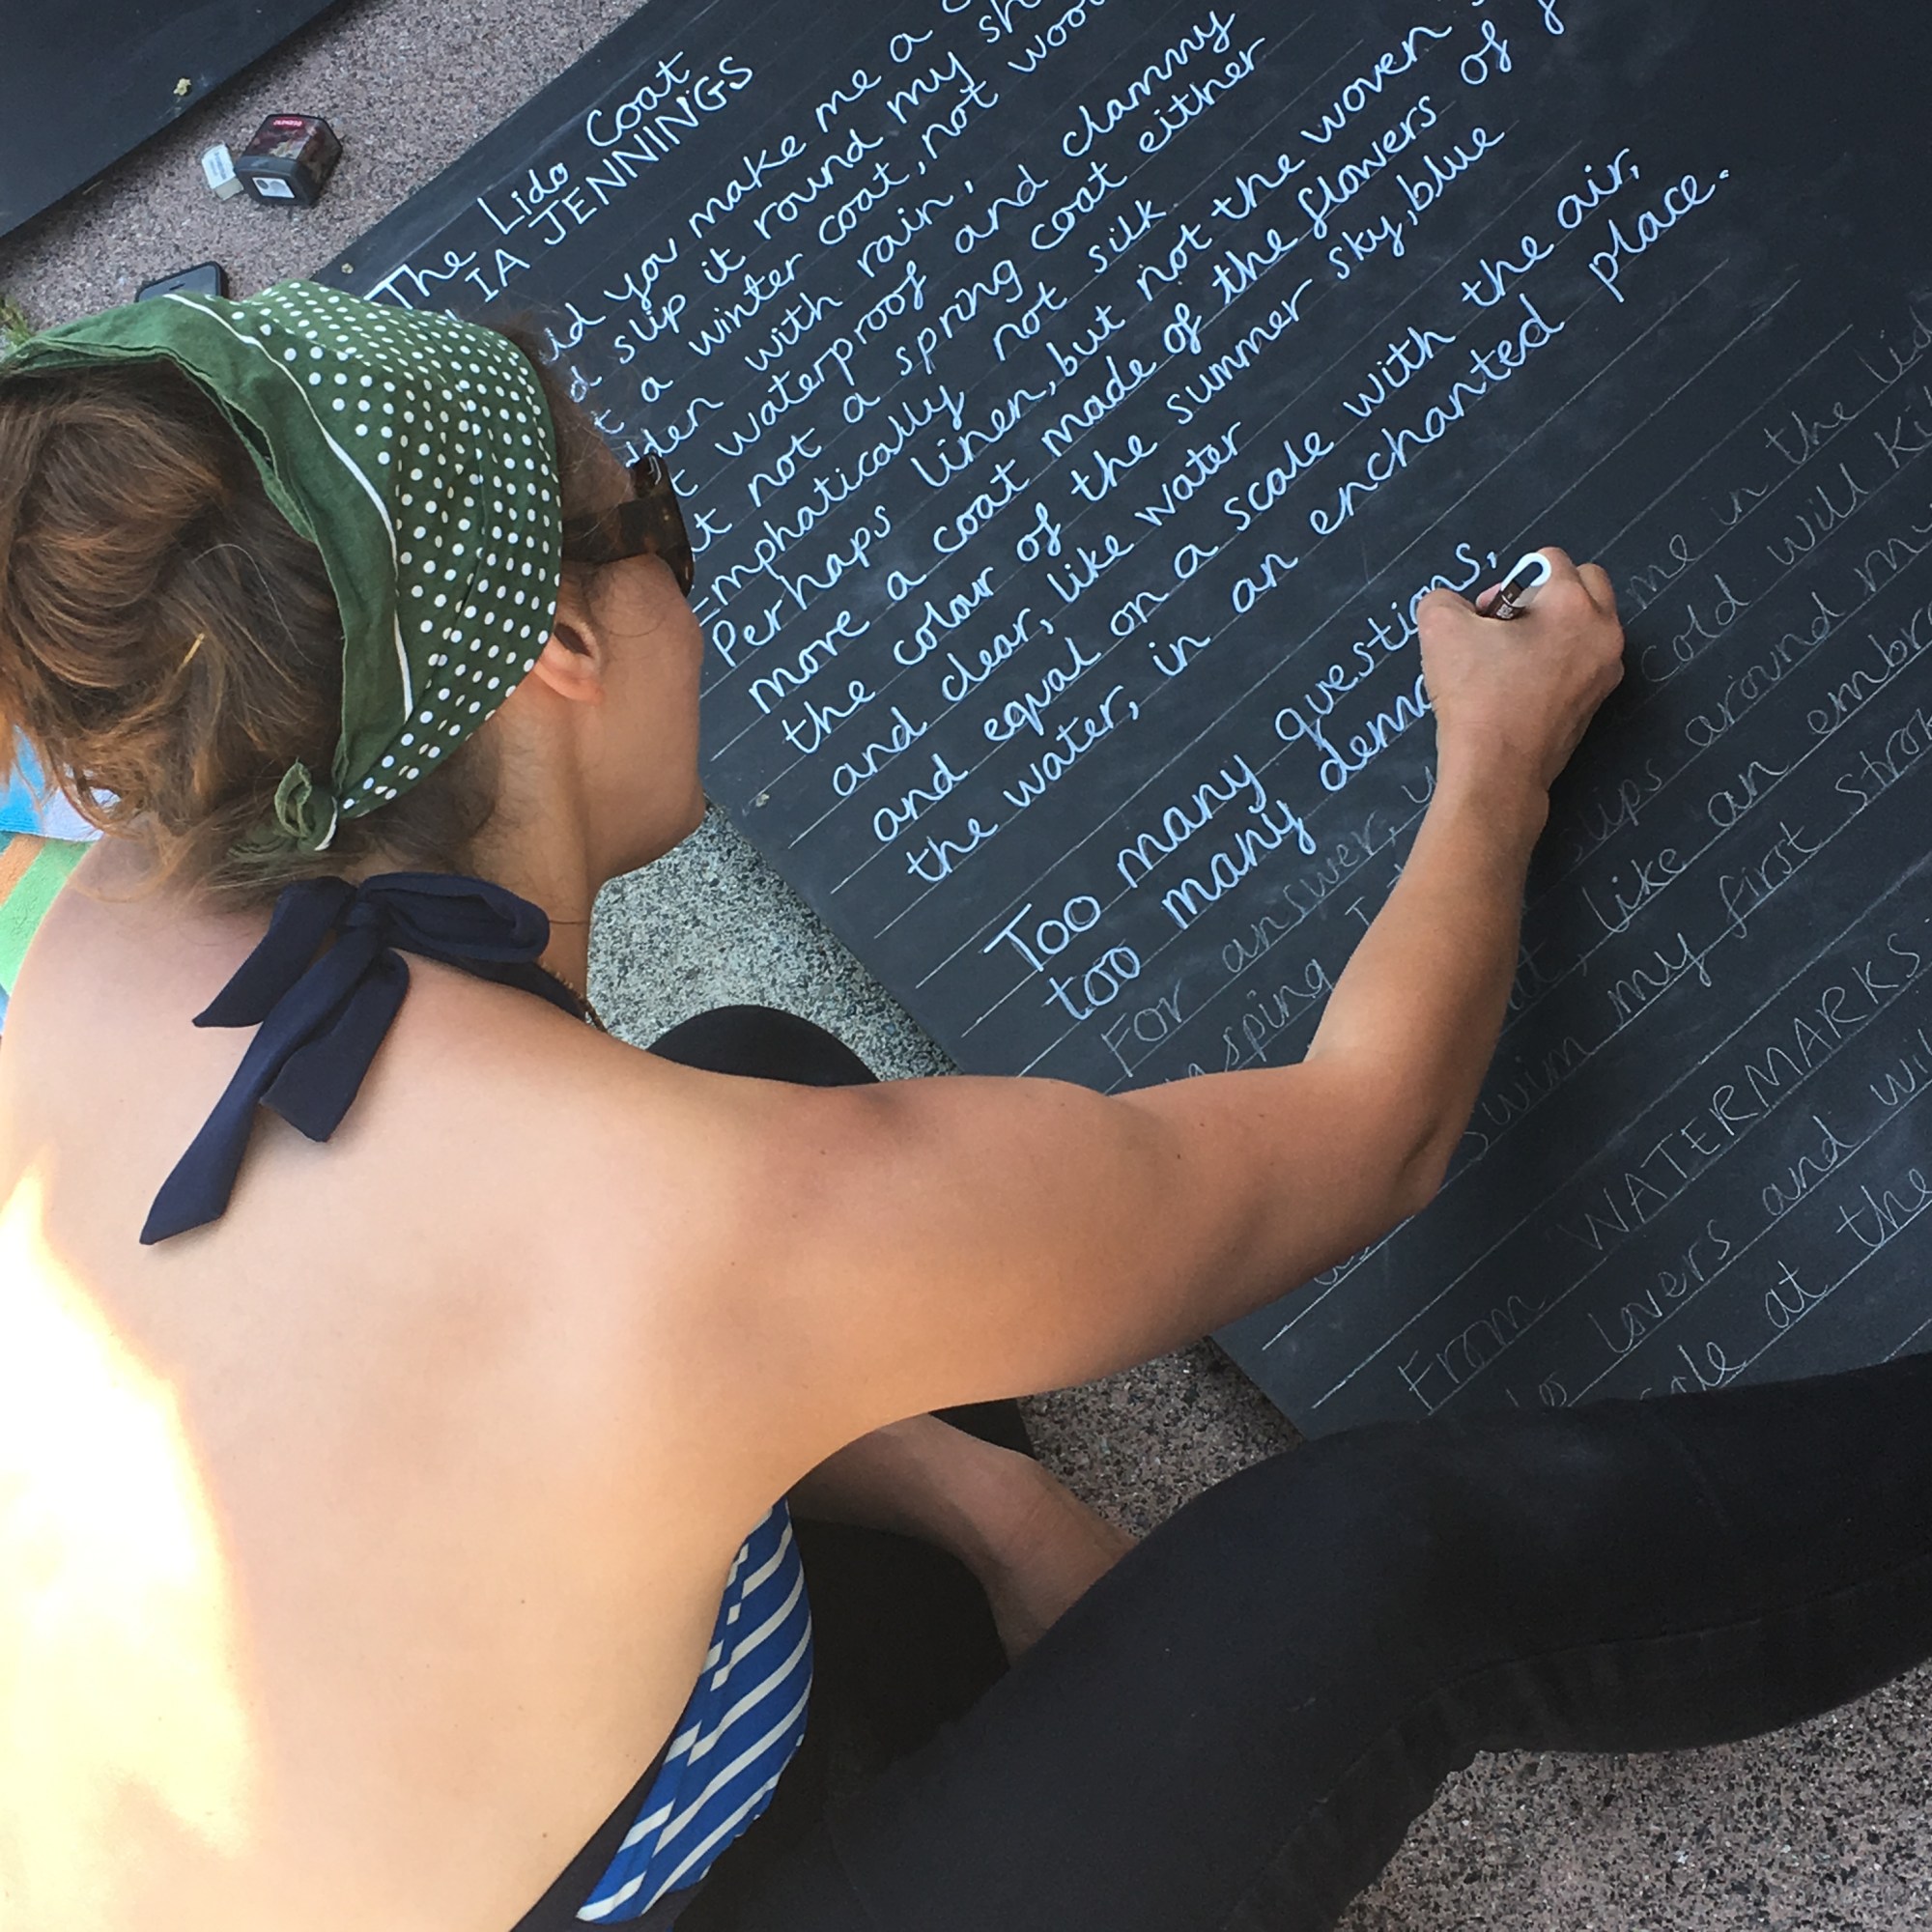 The Lido Coat
IA JENNINGS
you make me a
slip it round my
a winter coat, not
with rain,
waterproof and clammy
not a spring coat either
Emphatically not silk.
Perhaps linen, but not the woven
more a coat made of the flowers of
the colour of the summer sky, blue
and clear, like water
and equal on a scale with the air,
the water, in an enchanted place.
Too many questions,
too many
me in the
For answer, cold will
around my
like an
swim my first
From WATERMARKS
lovers and
at the